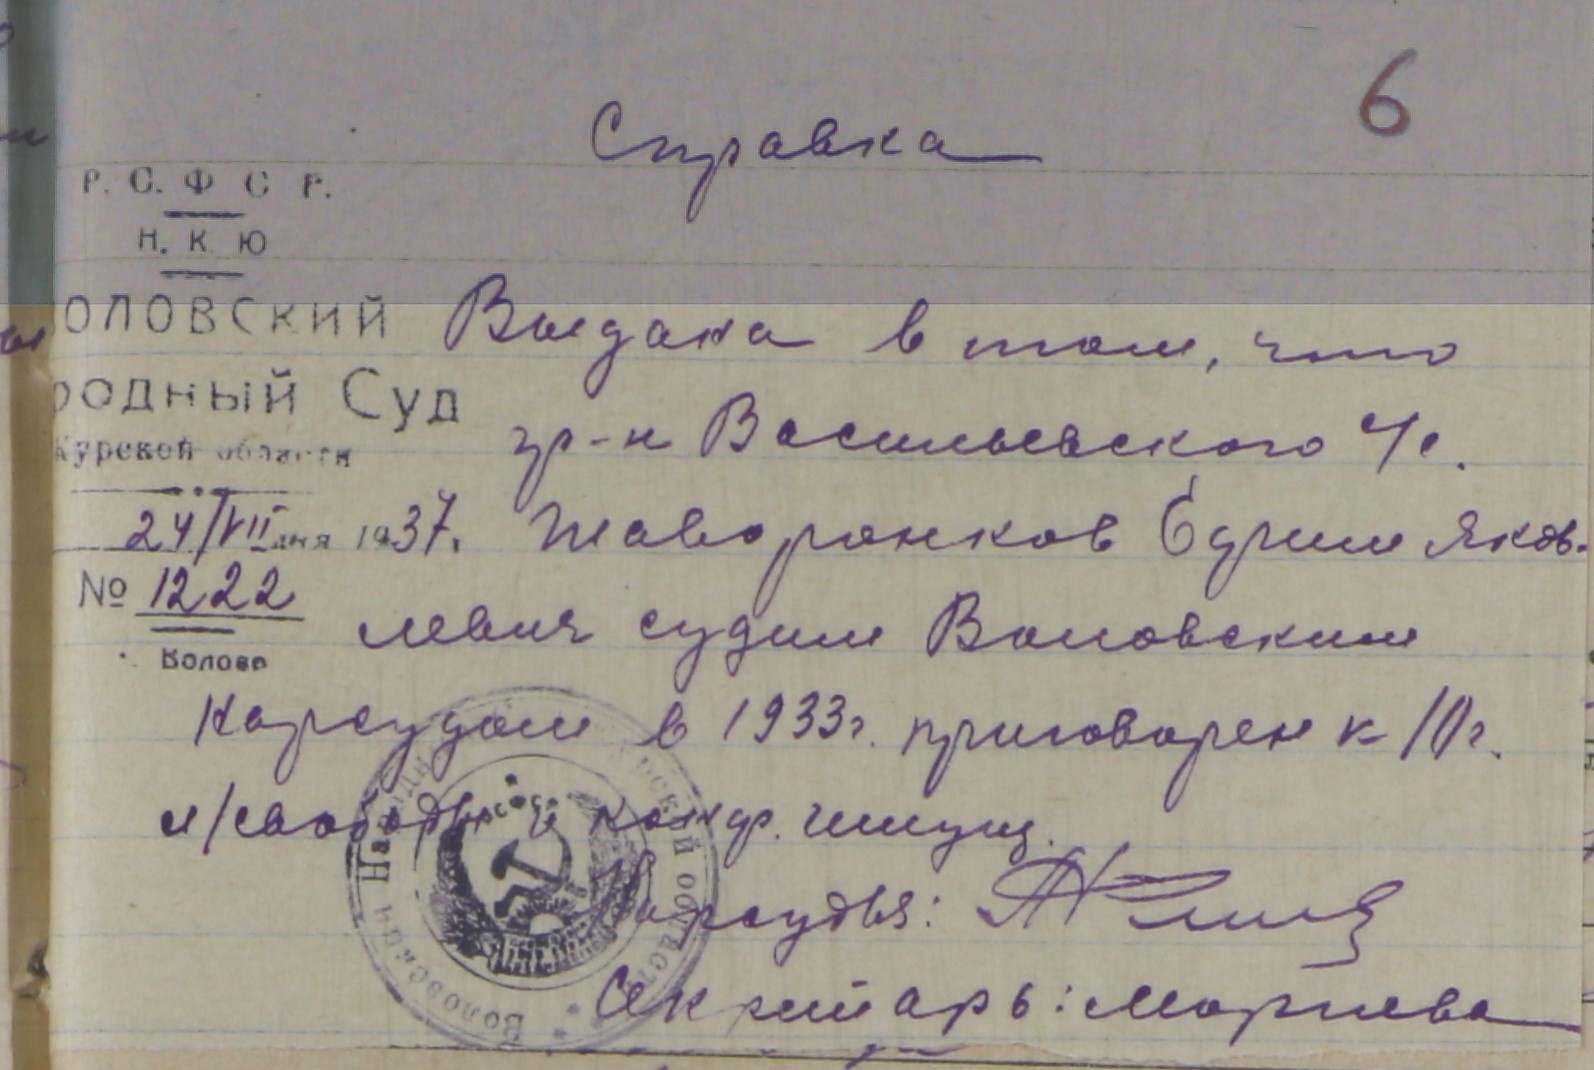 6
Справка
Р. С. Ф С Р.
Н. К. Ю
оловский
родный Суд
Курской области
24/VII дня 1937.
№ 1222
Волово
Выдана в том, что
гр-н Васильевского с/с.
Жаворонков Ефим Яков-
левич судим Воловским
Нарсудом в 1933г. приговорен к 10г.
л/свободы и конф. имущ.
Нарсудья:
Секретарь:
Воловский Народн
урской област